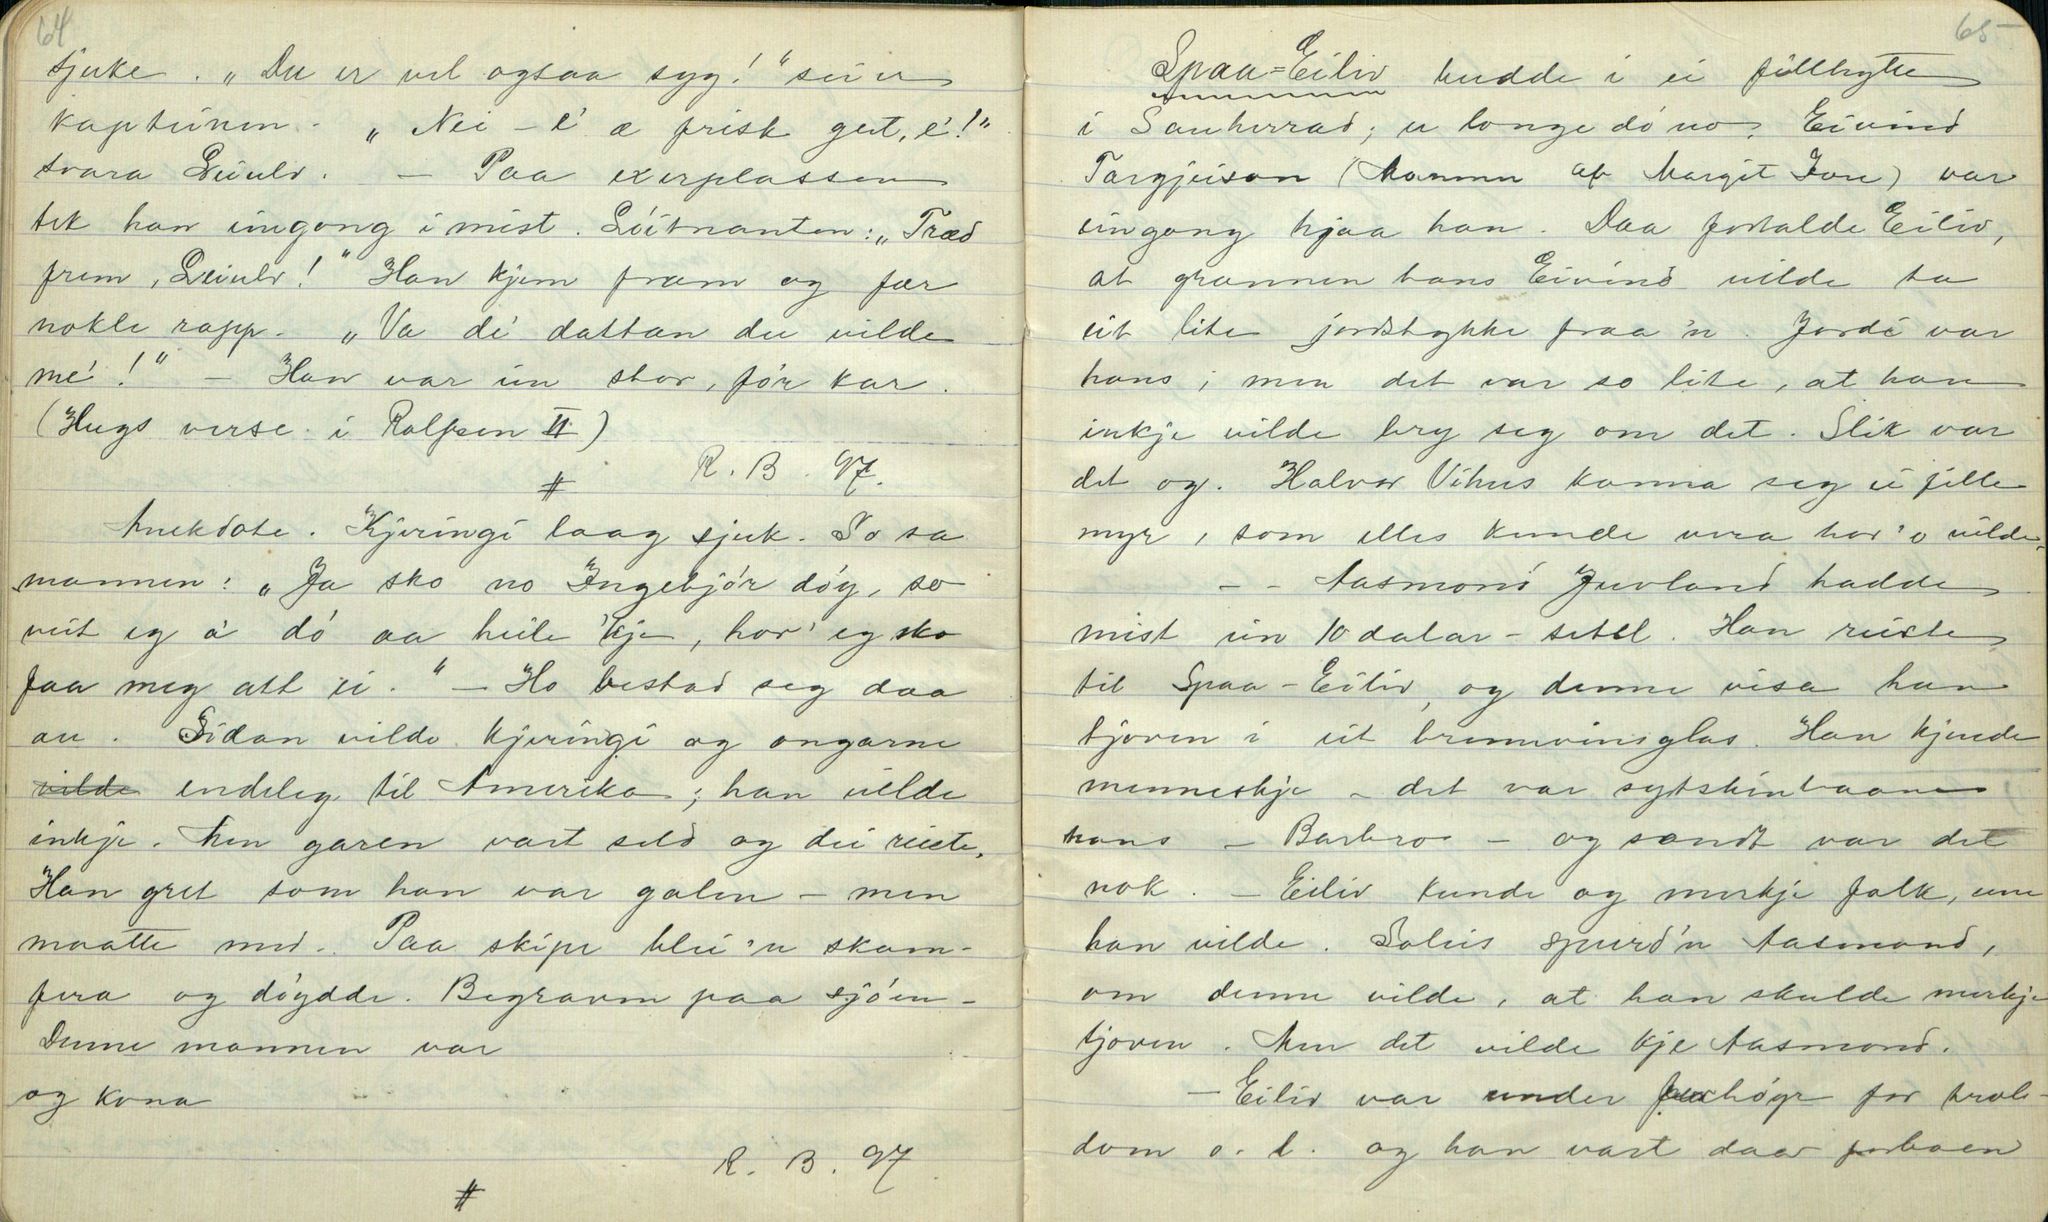 64
sjuke. „Du er vel ogsaa syg!" sei'n
kapteinen. „Nei – e' æ frisk gut, e'!"
svara Leiulv. – Paa exerplassen
tek han eingong i mist. Löitnanten: „Træd
frem, Leiulv!" Han kjem fram og fær
nokle rapp. „Va de' dattan du vilde
me'!" – Han var ein stor, før kar.
(Hugs verse i Rolfsen II)
R. B. 97.
#
Anekdote. Kjeringi laag sjuk. So sa
mannen: „Ja sko no Ingebjør døy, so
veit eg á dó aa heile 'kje, hor' eg sko
faa meg att ei." – Ho bestad seg daa
au. Sidan vilde kjeringi og ongarne
vilde endeleg til Amerika; han vilde
inkje. Men garen vart seld og dei reiste.
Han gret som han var galen – men
maatte med. Paa skipe blei 'n skam-
fera og døydde. Begraven paa sjøen –
Denne mannen var
og kona
R. B. 97
#
65
Spaa-Eiliv budde i ei fillhytte
i Sauherrad; er longe dó no. Eivind
Targjeison (Mannen at Margit Fore) var
eingong hjaa han. Daa fortalde Eiliv,
at grannen hans Eivind vilde ta
eit lite jordstykke fraa 'n. Jordi var
hans; men det var so lite, at han
inkje vilde bry seg om det. Slik var
det og. Halvor Vihus kanna seg ei fille
myr, som elles kunde vera hor 'o vilde.
– – Aasmond Juvland hadde
mist ein 10 dalar-setel. Han reiste
til Spaa-Eiliv, og denne visa han
tjoven i eit brennevinsglas. Han kjende
menneskje – det var sytskinbaane
hans – Barbro – og sandt var det
nok. – Eiliv kunde og merkje folk, um
han vilde. Soleis spurd'n Aasmond,
om denne vilde, at han skulde merkje
tjoven. Men det vilde kje Aasmond.
– Eiliv var under forhøyr for troll-
dom o. l. og han vart daa forboen